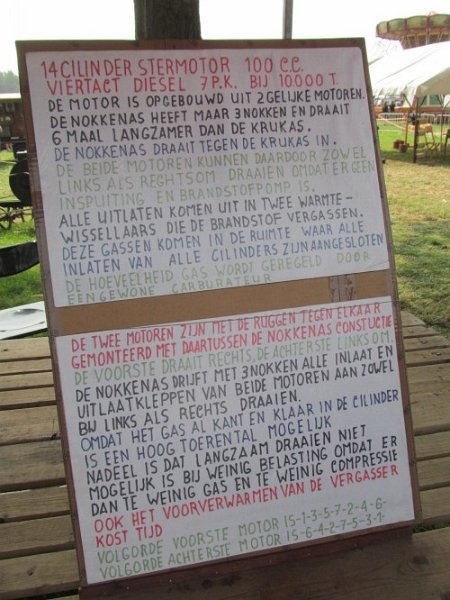 14 CILINDER STERMOTOR 100 C.C.
VIERTACT DIESEL 7 P.K. BIJ 10000 T.
DE MOTOR IS OPGEBOUWD UIT 2 GELIJKE MOTOREN.
DE NOKKENAS HEEFT MAAR 3 NOKKEN EN DRAAIT
6 MAAL LANGZAMER DAN DE KRUKAS.
DE NOKKENAS DRAAIT TEGEN DE KRUKAS IN.
DE BEIDE MOTOREN KUNNEN DAARDOOR ZOWEL
LINKS ALS RECHTSOM DRAAIEN OMDAT ER GEEN
INSPUITING EN BRANDSTOFPOMP IS.
ALLE UITLATEN KOMEN UIT IN TWEE WARMTE-
WISSELLAARS DIE DE BRANDSTOF VERGASSEN.
DEZE GASSEN KOMEN IN DE RUIMTE WAAR ALLE
INLATEN VAN ALLE CILINDERS ZIJN AANGESLOTEN
DE HOEVEELHEID GAS WORDT GEREGELD DOOR
EEN GEWONE CARBURATEUR
DE TWEE MOTOREN ZIJN MET DE RUGGEN TEGEN ELKAAR
GEMONTEERD MET DAARTUSSEN DE NOKKENAS CONSTUCTIE
DE VOORSTE DRAAIT RECHTS, DE ACHTERSTE LINKS OM.
DE NOKKENAS DRIJFT MET 3 NOKKEN ALLE INLAAT EN
UITLAATKLEPPEN VAN BEIDE MOTOREN AAN ZOWEL
BIJ LINKS ALS RECHTS DRAAIEN.
OMDAT HET GAS AL KANT EN KLAAR IN DE CILINDER
IS EEN HOOG TOERENTAL MOGELIJK
NADEEL IS DAT LANGZAAM DRAAIEN NIET
MOGELIJK IS BIJ WEINIG BELASTING OMDAT ER
DAN TE WEINIG GAS EN TE WEINIG COMPRESSIE
OOK HET VOORVERWARMEN VAN DE VERGASSER
KOST TIJD
VOLGORDE VOORSTE MOTOR IS-1-3-5-7-2-4-6-
VOLGORDE ACHTERSTE MOTOR IS-6-4-2-7-5-3-1-